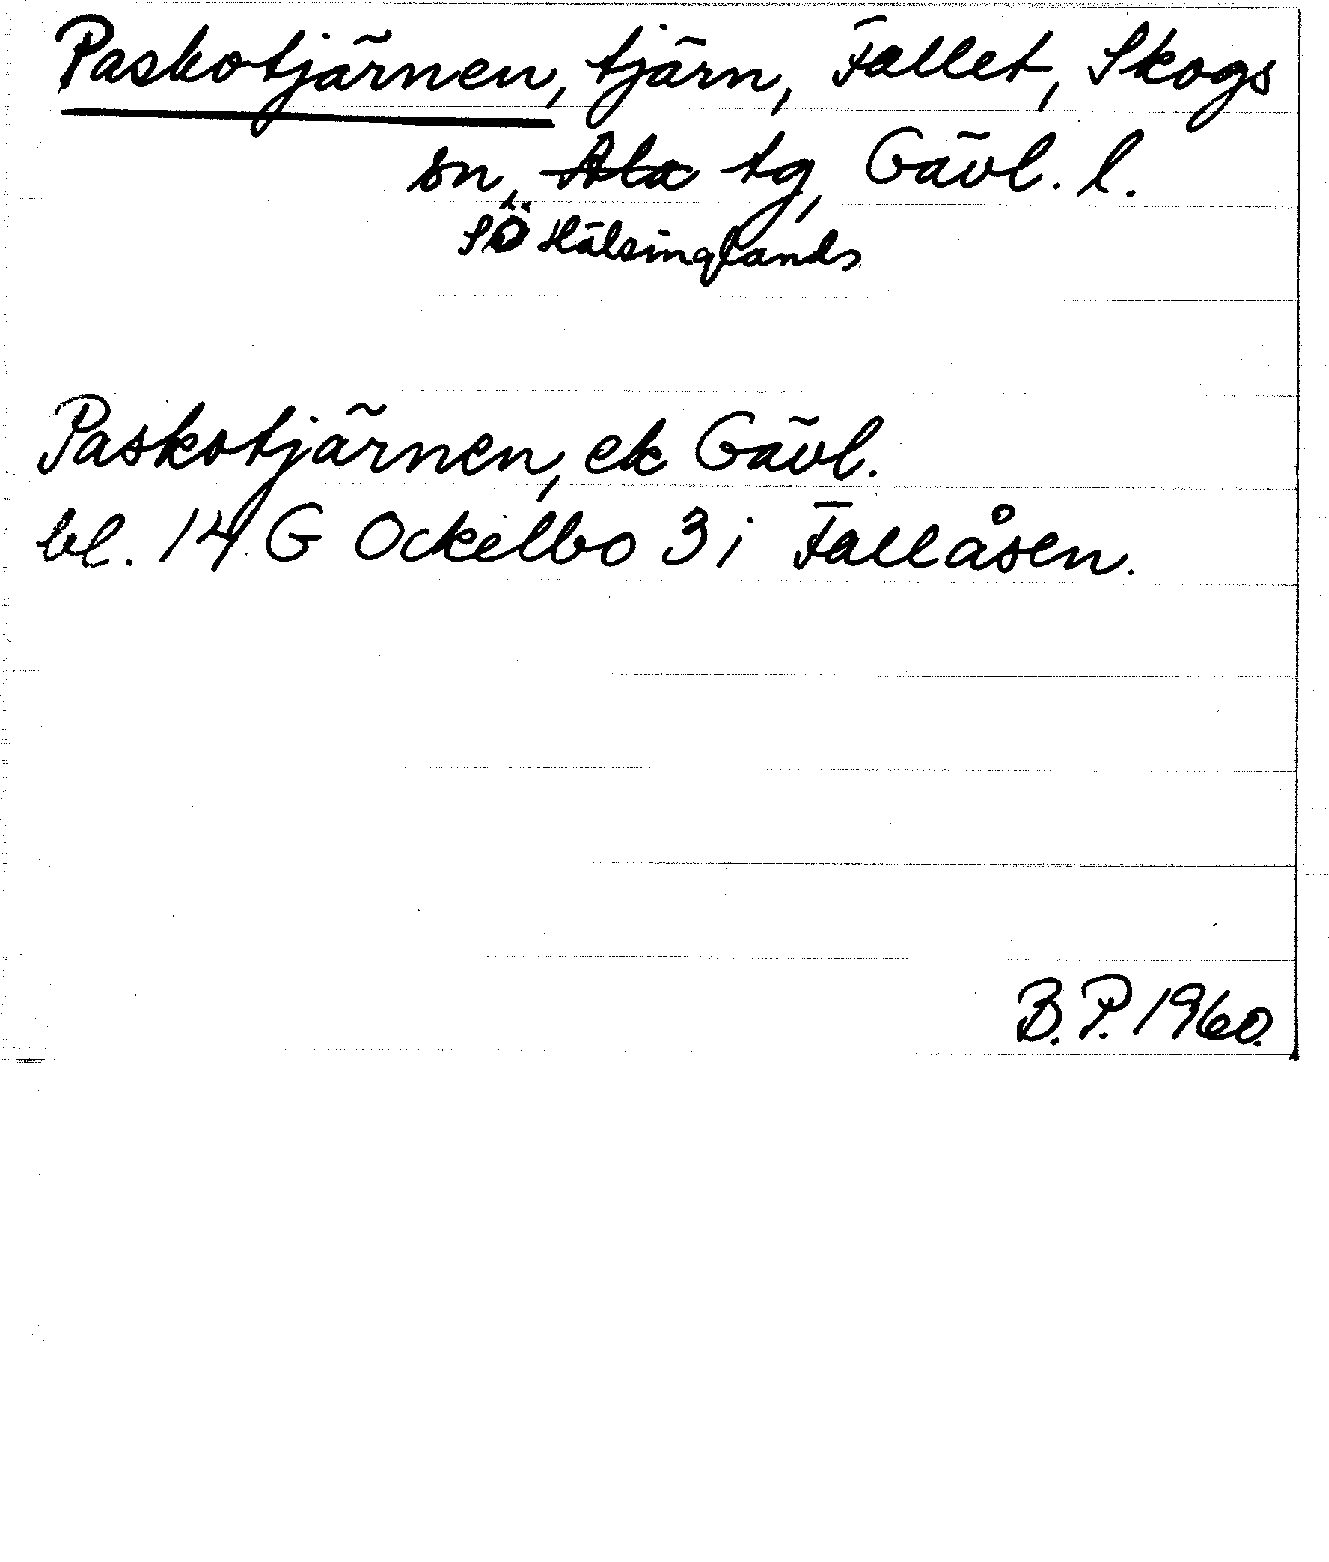 Paskotjärnen, tjärn, Fallet, Skogs
sn, Ala tg, Gävl. l.
SÖ Hälsinglands
Paskotjärnen, ek Gävl.
bl. 14 G Ockelbo 3 i Fallåsen.
B.P. 1960.